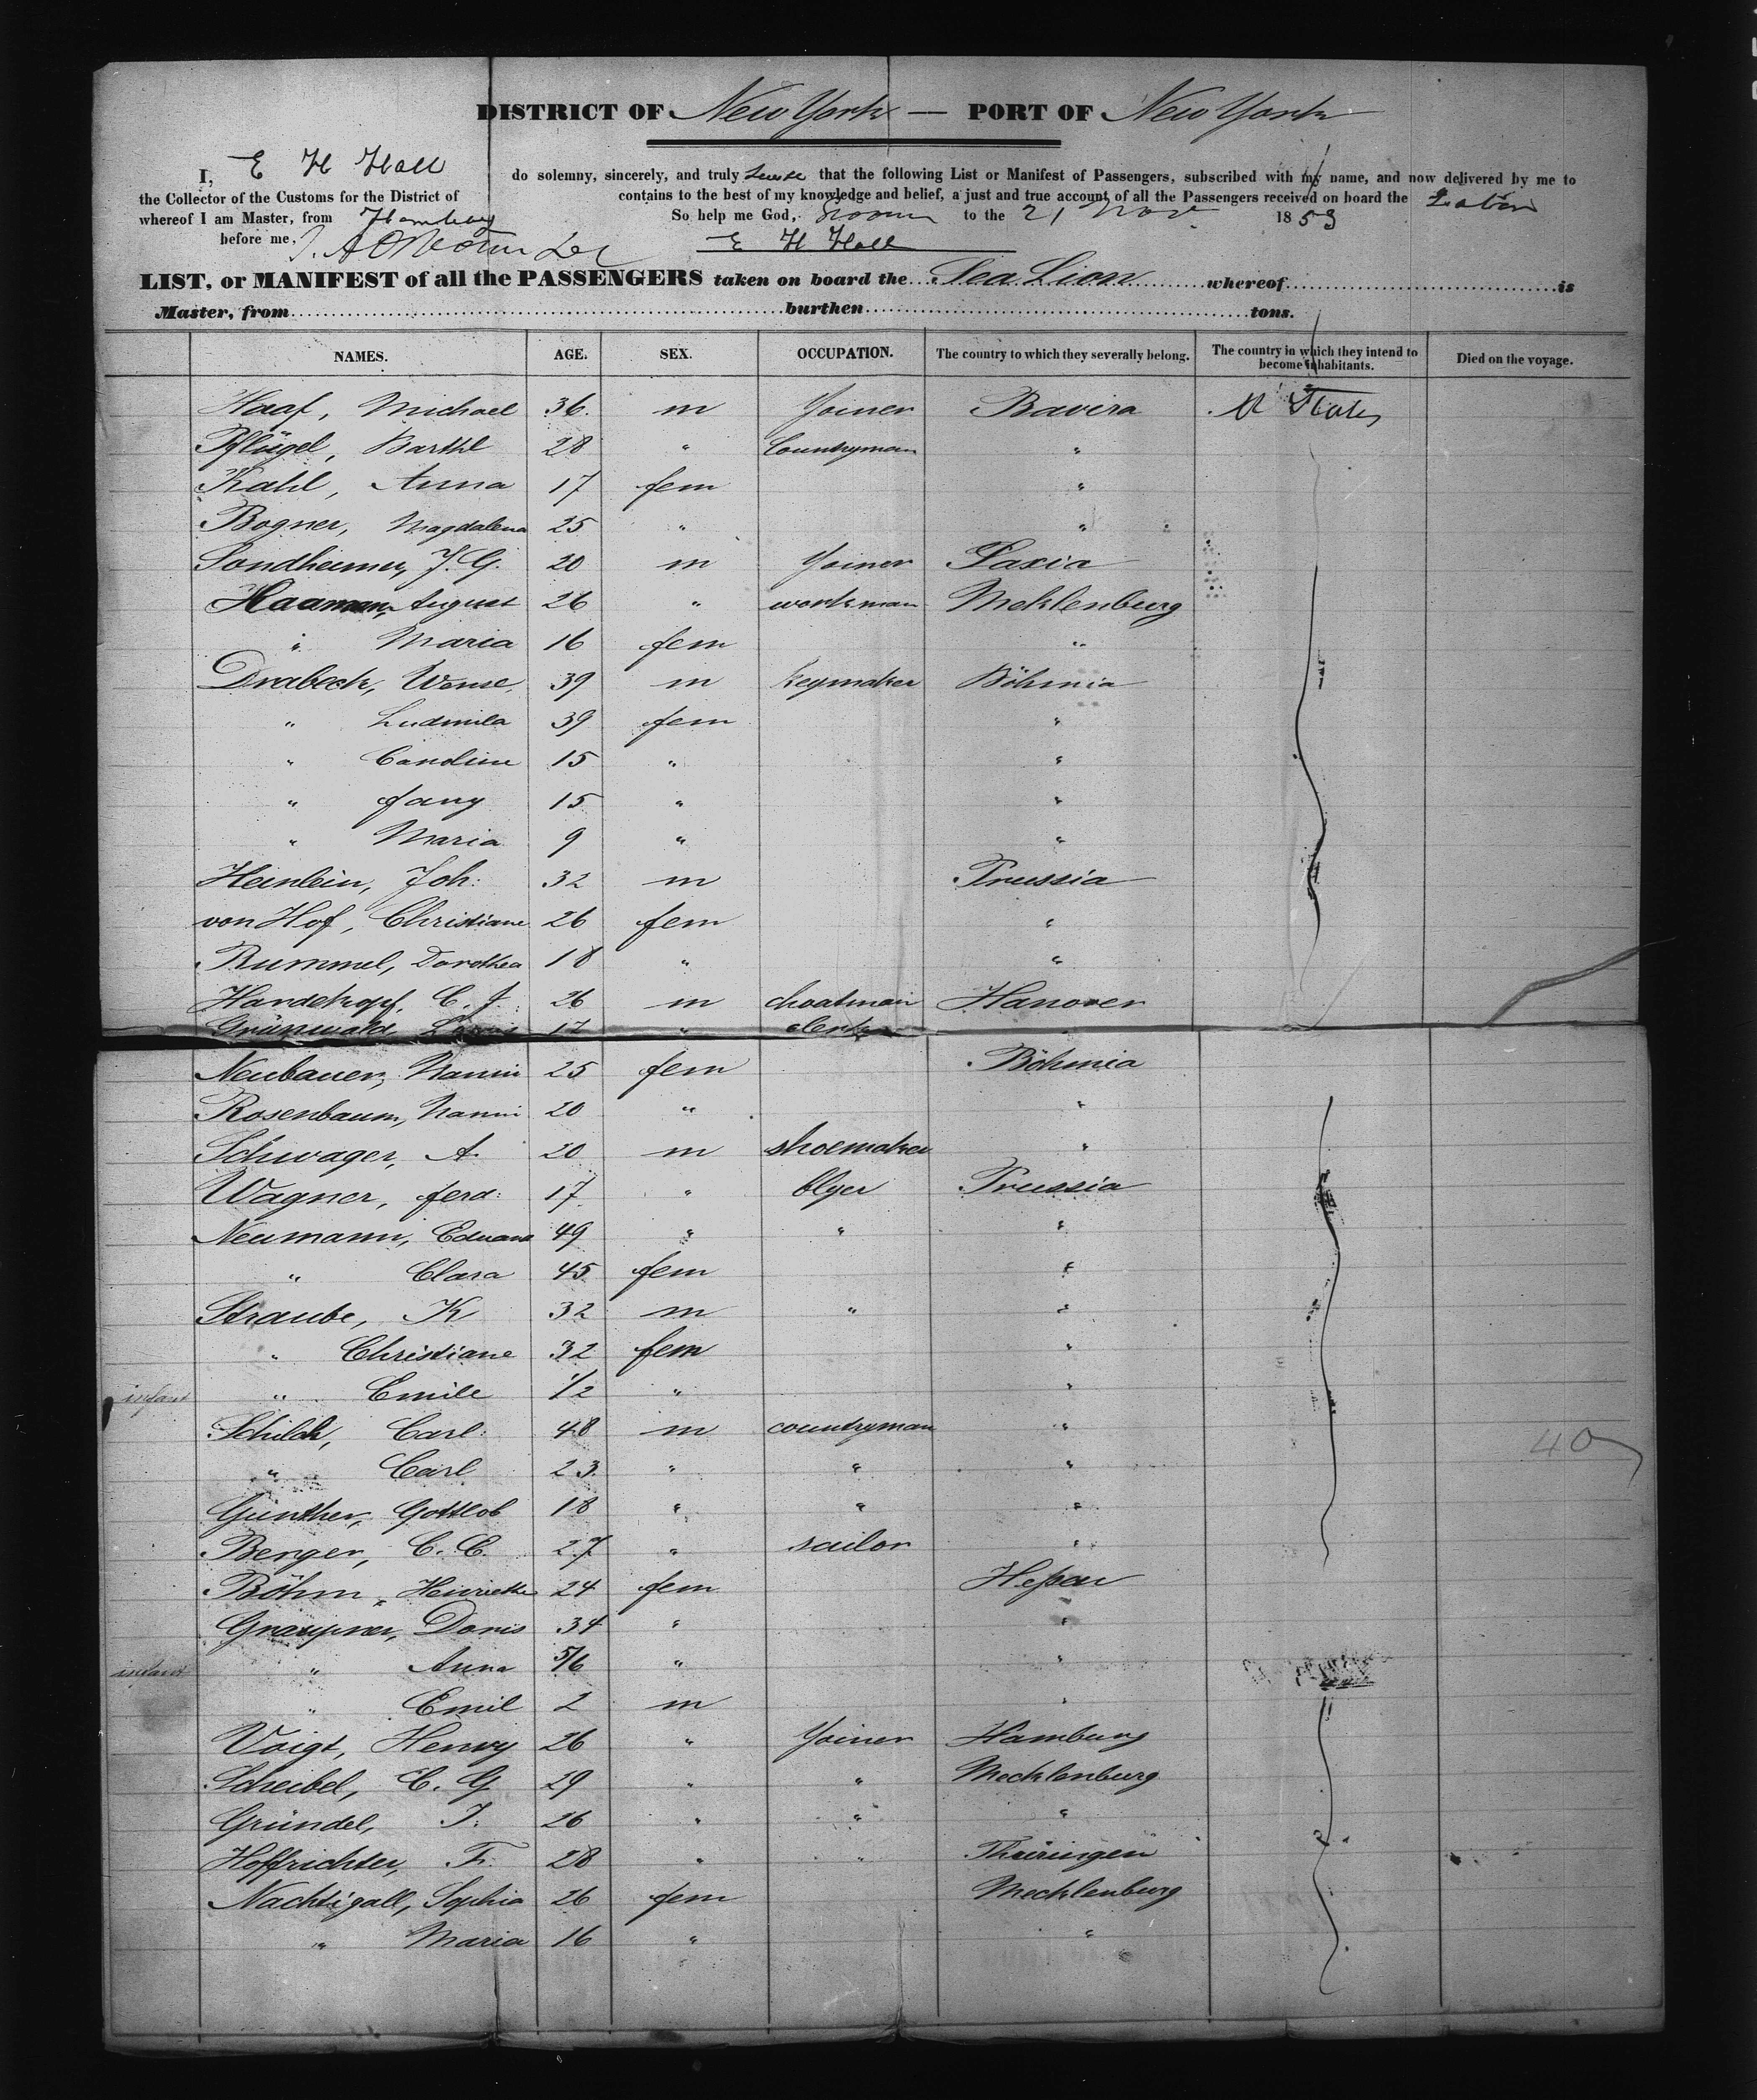 DISTRICT OF New York — PORT OF New York
I, E H Hall do solemny, sincerely, and truly that the following List or Manifest of Passengers, subscribed with my name, and now delivered by me to
the Collector of the Customs for the District of contains to the best of my knowledge and belief, a just and true account of all the Passengers received on board the
whereof I am Master, from Hamburg So help me God, to the 21 Nov 1853
before me, E H Hall
LIST, or MANIFEST of all the PASSENGERS taken on board the Sea Lion whereof is
Master, from burthen tons.
NAMES. AGE. SEX. OCCUPATION. The country to which they severally belong. The country in which they intend to become inhabitants. Died on the voyage.
Haaf, Michael 36. m Joiner Bavira U States
Pflügel, Barthl 28 " Countryman "
Kahl, Anna 17 fem "
Bogner, Magdalena 25 " "
Sondheimer, J. G. 20 m Joiner Saxia
Haaman, August 26 " workman Meklenburg
" Maria 16 fem "
Drabeck, Wense. 39 m keymaker Böhmia
" Ludmila 39 fem "
" Caroline 15 " "
" Fany 15 " "
" Maria 9 " "
Heinlein, Joh: 32 m Prussia
von Hof, Christiane 26 fem "
Rummel, Dorothea 18 " "
Handekopf, C. J. 26 m Hanover
Grünwald, 17 " clerk
Neubauer, Nanni 25 fem Böhmia
Rosenbaum, Nanni 20 " "
Schwager, A. 20 m shoemaker "
Wagner, ferd: 17. " Prussia
Neumann, Eduard 49 " " "
" Clara 45 fem "
Straube, K 32 m " "
" Christiane 32 fem "
infant " Emile 1/2 " "
Schilch, Carl. 48 m countryman "
" Carl 23. " " "
Gunther, Gottlob 18 " " "
Berger, C. C. 27 " sailor "
Böhm, Henriette 24 fem Heßen
Graupner, Doris 34 " "
infant " Anna 5/6 " "
" Emil 2 m "
Voigt, Henry 26 " Joiner Hamburg
Scheibel, C. G 29 " " Mecklenburg
Gründel, J. 26 " " "
Hoffrichter, Fr. 28 " " Thüringen
Nachtigall, Sophia 26 fem Mecklenburg
" Maria 16 " "
40